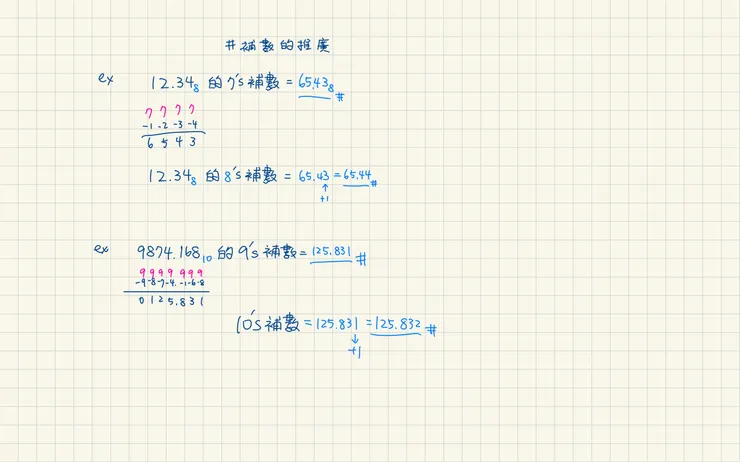 #補數的推廣
ex 12.34₈ 的 7's 補數 = 65.43₈ #
7 7 7 7
-1 -2 -3 -4
6 5 4 3
12.34₈ 的 8's 補數 = 65.43 = 65.44 #
↑
+1
ex 9874.168₁₀ 的 9's 補數 = 125.831 #
9999 999
-9-8-7-4. -1-6-8
0 1 2 5.8 3 1
10's 補數 = 125.831 = 125.832 #
↓
+1